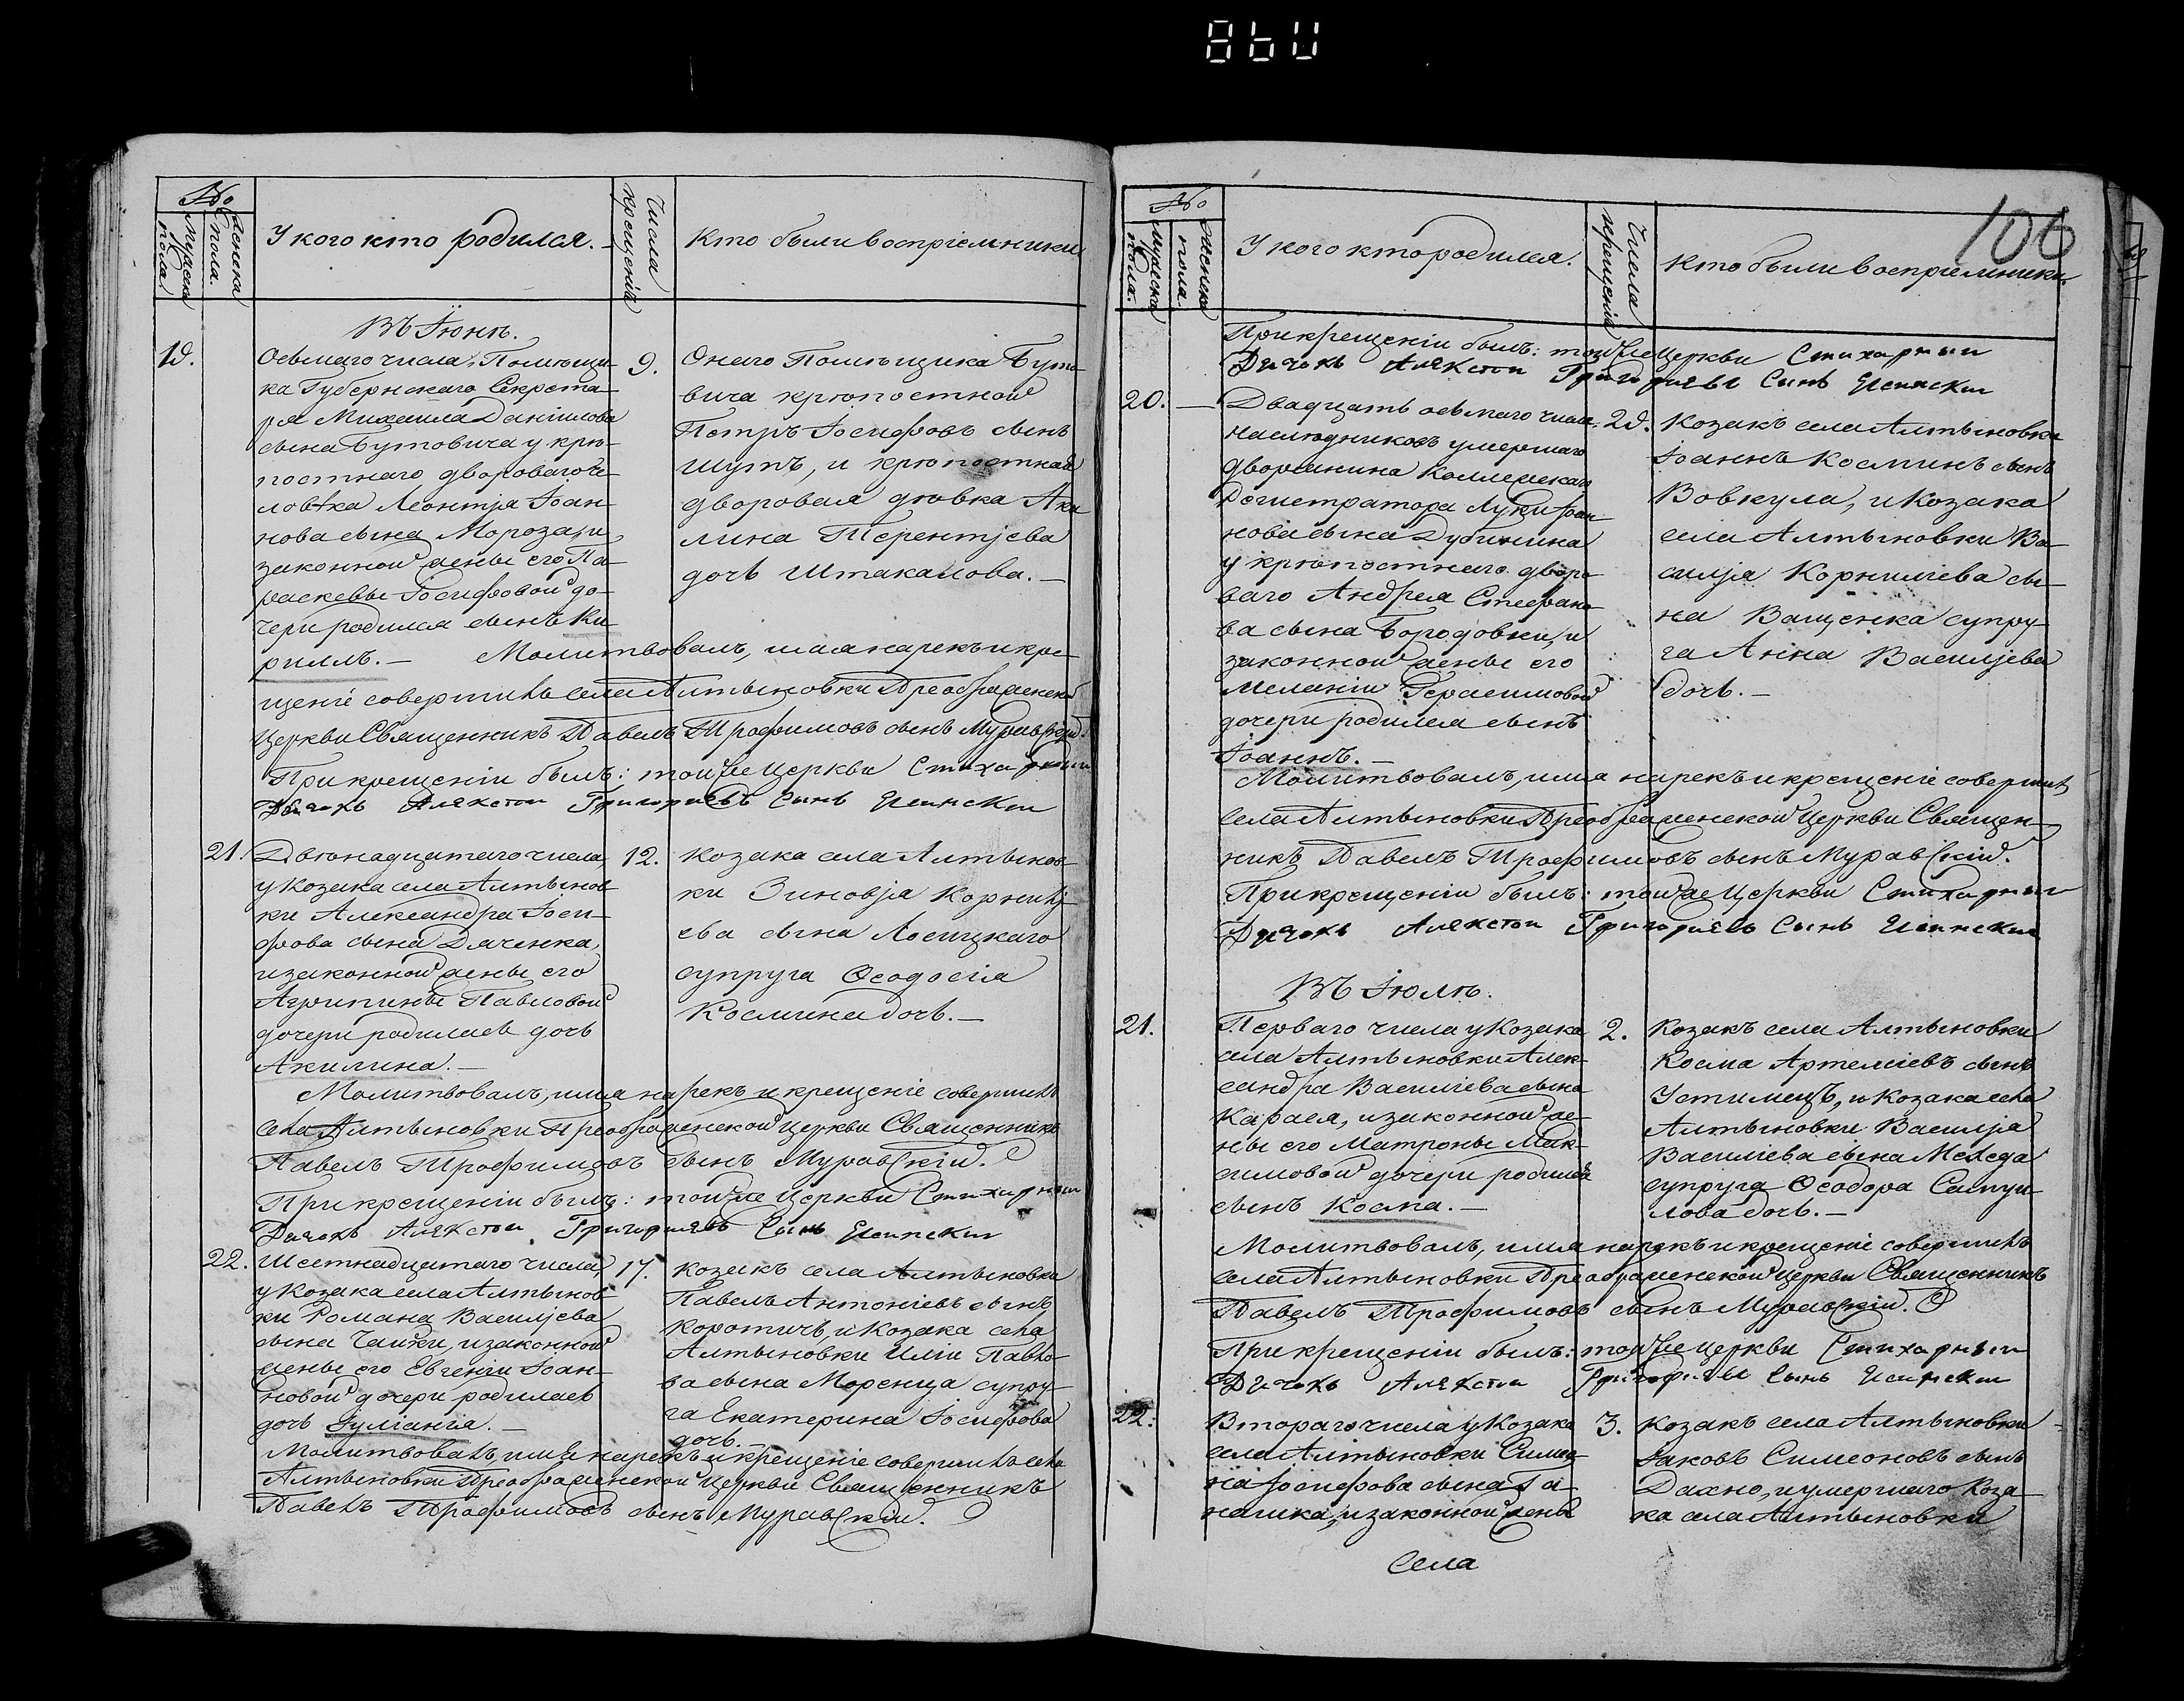 №
Мужеска пола
Женска пола.
У кого кто родился.
Числа крещенія
Кто были воспріемники
Въ Іюнѣ.
19.
Осьмаго числа, Помѣщи-
ка Губернскаго Секрета-
ря Михаила Даніилова
сына Бутовича у крѣ-
постнаго двороваго че-
ловѣка Леонтія Іоан-
нова сына Мороза, и
законной жены его Па-
раскевы Іосифовой до-
чери родился сынъ Ки-
риллъ.—
9.
Онаго Помѣщика Буто-
вича крѣпостной
Петръ Іосифовъ сынъ
Шутъ, и крѣпостная
дворовая дѣвка Аки
лина Терентіева
дочь Штакалова.—
Молитвовалъ, имя нарекъ и кре-
щеніе совершилъ села Алтыновки Преображенской
Церкви Священникъ Павелъ Трофимовъ сынъ Муравскій.
При крещеніи былъ: тойже Церкви Стихарный
Дьячокъ Алексѣй Григорьевъ Сынъ Ясинский
21.
Двѣнадцатаго числа,
у Козака села Алтынов-
ки Александра Іоси-
фова сына Дяченка,
и законной жены его
Агрипины Павловой
дочери родилась дочь
Акилина.—
12.
Козака села Алтынов-
ки Зиновія Корнилі-
ева сына Лосицкаго
супруга Ѳеодосія
Космина дочь.—
Молитвовалъ, имя нарекъ и крещеніе совершилъ
села Алтыновки Преображенской Церкви Священникъ
Павелъ Трофимовъ сынъ Муравскій.
При крещеніи былъ: тойже Церкви Стихарный
Дьячокъ Алексѣй Григорьевъ Сынъ Ясинский
22.
Шестнадцатаго числа,
у Козака села Алтынов-
ки Романа Василіева
сына Чайки, и законной
жены его Евгеніи Іоан-
новой дочери родилась
дочь Іуліанія.—
17.
Козакъ села Алтыновки
Павелъ Антоніевъ сынъ
Коротичъ, и Козака села
Алтыновки Иліи Павло-
ва сына Моренца супру-
га Екатерина Іосифова
дочь.—
Молитвовалъ, имя нарекъ и крещеніе совершилъ села
Алтыновки Преображенской Церкви Священникъ
Павелъ Трофимовъ сынъ Муравскій.
106
№
Мужеска пола.
Женска пола.
У кого кто родился.
Числа крещенія
Кто были воспріемники.
При крещеніи былъ: тойже Церкви Стихарный
Дьячокъ Алексѣй Григорьевъ Сынъ Ясинский
20.—
Двадцать осьмаго числа,
наслѣдниковъ умершаго
дворянина Коллежскаго
Регистратора Луки Іоан-
нова сына Дубинина
у крѣпостнаго дворо-
ваго Андрея Стефано-
ва сына Бородовки, и
законной жены его
Меланіи Герасимовой
дочери родился сынъ
Іоаннъ.—
29.
Козакъ села Алтыновки
Іоаннъ Косминъ сынъ
Вовкула, и Козака
села Алтыновки Ва-
силія Корниліева сы-
на Ващенка супру-
га Анна Василіева
дочь.—
Молитвовалъ, имя нарекъ и крещеніе совершилъ
села Алтыновки Преображенской Церкви Священ-
никъ Павелъ Трофимовъ сынъ Муравскій.
При крещеніи былъ: тойже Церкви Стихарный
Дьячокъ Алексѣй Григорьевъ Сынъ Ясинский
Въ Іюлѣ.
21.
Перваго числа у Козака
села Алтыновки Алек-
сандра Василіева сына
Карася, и законной же-
ны его Матроны Мак-
симовой дочери родился
сынъ Косма.—
2.
Козакъ села Алтыновки
Косма Артеміевъ сынъ
Устимецъ, и Козака села
Алтыновки Василія
Василіева сына Мехеда
супруга Ѳеодора Самуи-
лова дочь.—
Молитвовалъ, имя нарекъ и крещеніе совершилъ
села Алтыновки Преображенской Церкви Священникъ
Павелъ Трофимовъ сынъ Муравскій.
При крещеніи былъ: тойже Церкви Стихарный
Дьячокъ Алексѣй Григорьевъ Сынъ Ясинский
22.
Втораго числа у Козака
села Алтыновки Симео-
на Іосифова сына
и законной жены
3.
Козакъ села Алтыновки
Іаковъ Симеоновъ сынъ
Дахно, и умершаго Коза-
ка села Алтыновки
Села